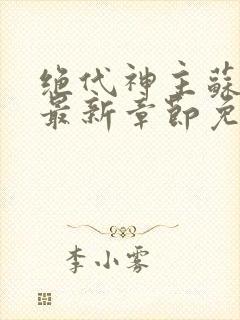 绝代神主蘇
最新章節免
李小雾